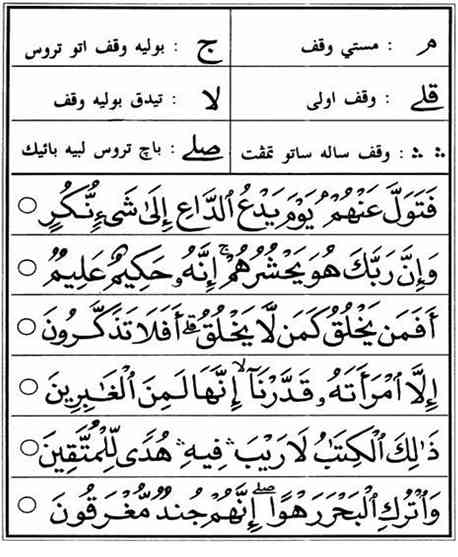 مـ : مستي وقف ج : بوليه وقف اتو تروس
قلے : وقف اولى لا : تيدق بوليه وقف
ۛ ۛ : وقف ساله ساتو تمڤت صلے : باچ تروس لبيه بائيك
فَتَوَلَّ عَنْهُمْ ۘ يَوْمَ يَدْعُ ٱلدَّاعِ إِلَىٰ شَىْءٍ نُّكُرٍ ○
وَإِنَّ رَبَّكَ هُوَ يَحْشُرُهُمْ ۚ إِنَّهُۥ حَكِيمٌ عَلِيمٌ ○
أَفَمَن يَخْلُقُ كَمَن لَّا يَخْلُقُ ۗ أَفَلَا تَذَكَّرُونَ ○
إِلَّا ٱمْرَأَتَهُۥ قَدَّرْنَآ ۙ إِنَّهَا لَمِنَ ٱلْغَٰبِرِينَ ○
ذَٰلِكَ ٱلْكِتَٰبُ لَا رَيْبَ ۛ فِيهِ ۛ هُدًى لِّلْمُتَّقِينَ ○
وَٱتْرُكِ ٱلْبَحْرَ رَهْوًا ۖ إِنَّهُمْ جُندٌ مُّغْرَقُونَ ○